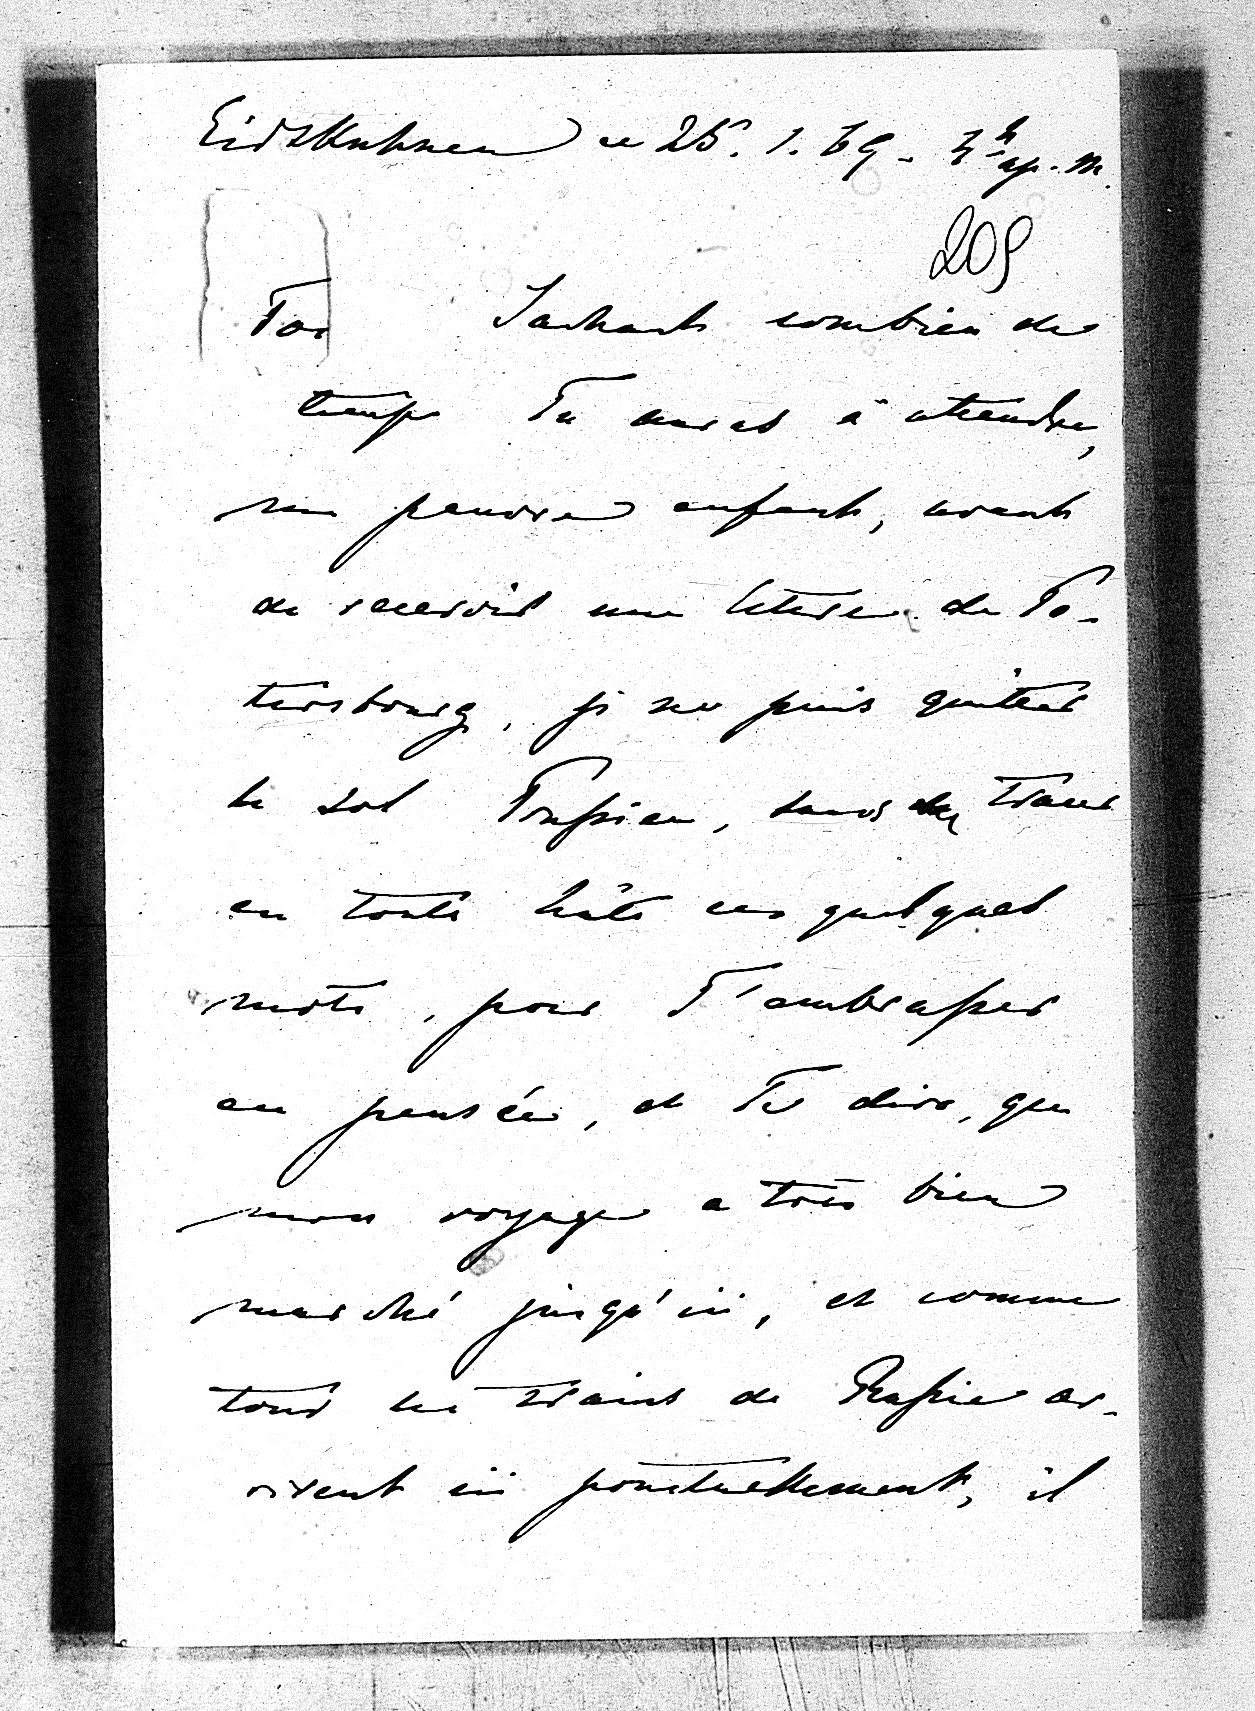 Eidtkuhnen ce 25. 1. 69. 3h ap. m.
209
Sachant combien de
temps Tu auras à attendre,
ma pauvre enfant, avant
de recevoir une lettre de Pe-
tersbourg, je ne puis quitter
le sol Prussien, sans tracer
en toute hâte ces quelques
mots, pour T'embrasser
en pensée, et Te dire, que
mon voyage a très bien
marché jusqu'ici, et comme
tous les trains de Russie ar-
rivent ici ponctuellement, il